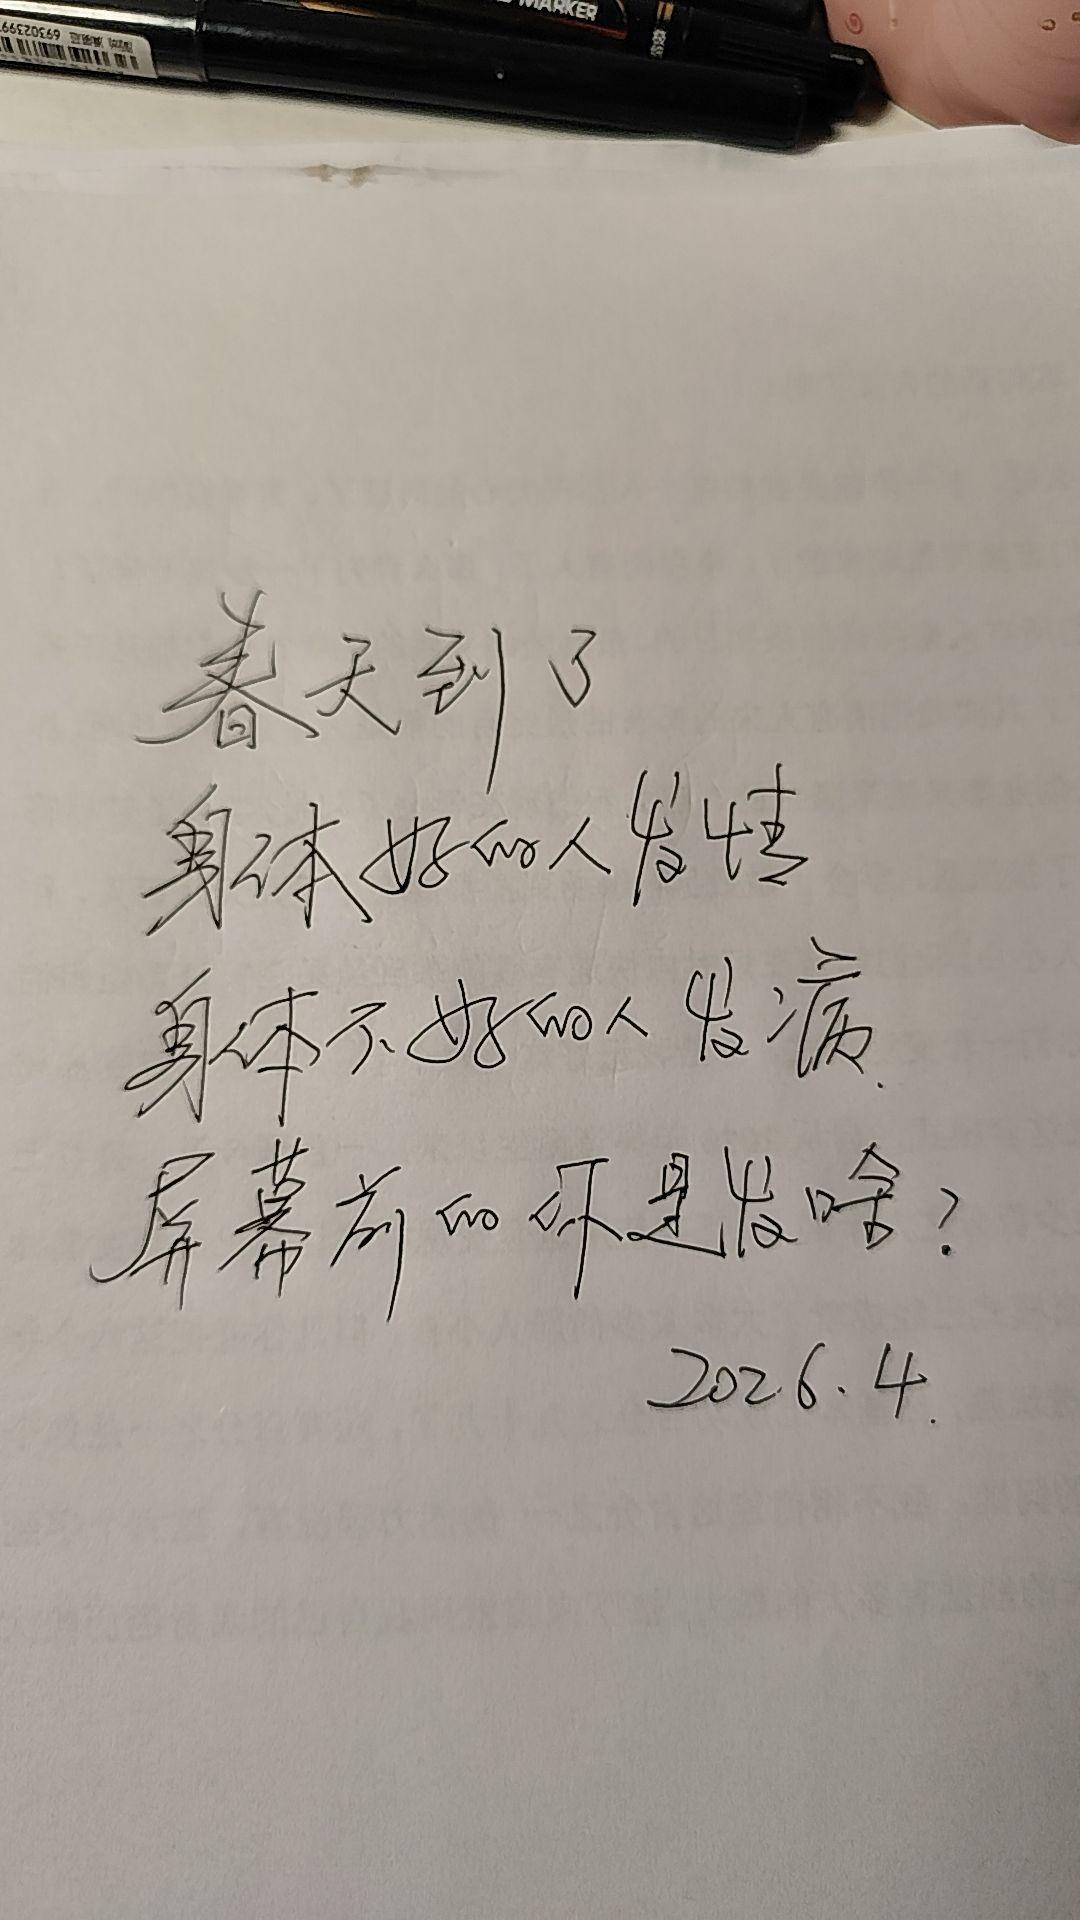 MARKER
69302399
春天到了
身体好的人发情
身体不好的人发病.
屏幕前的你是发啥?
2026.4.